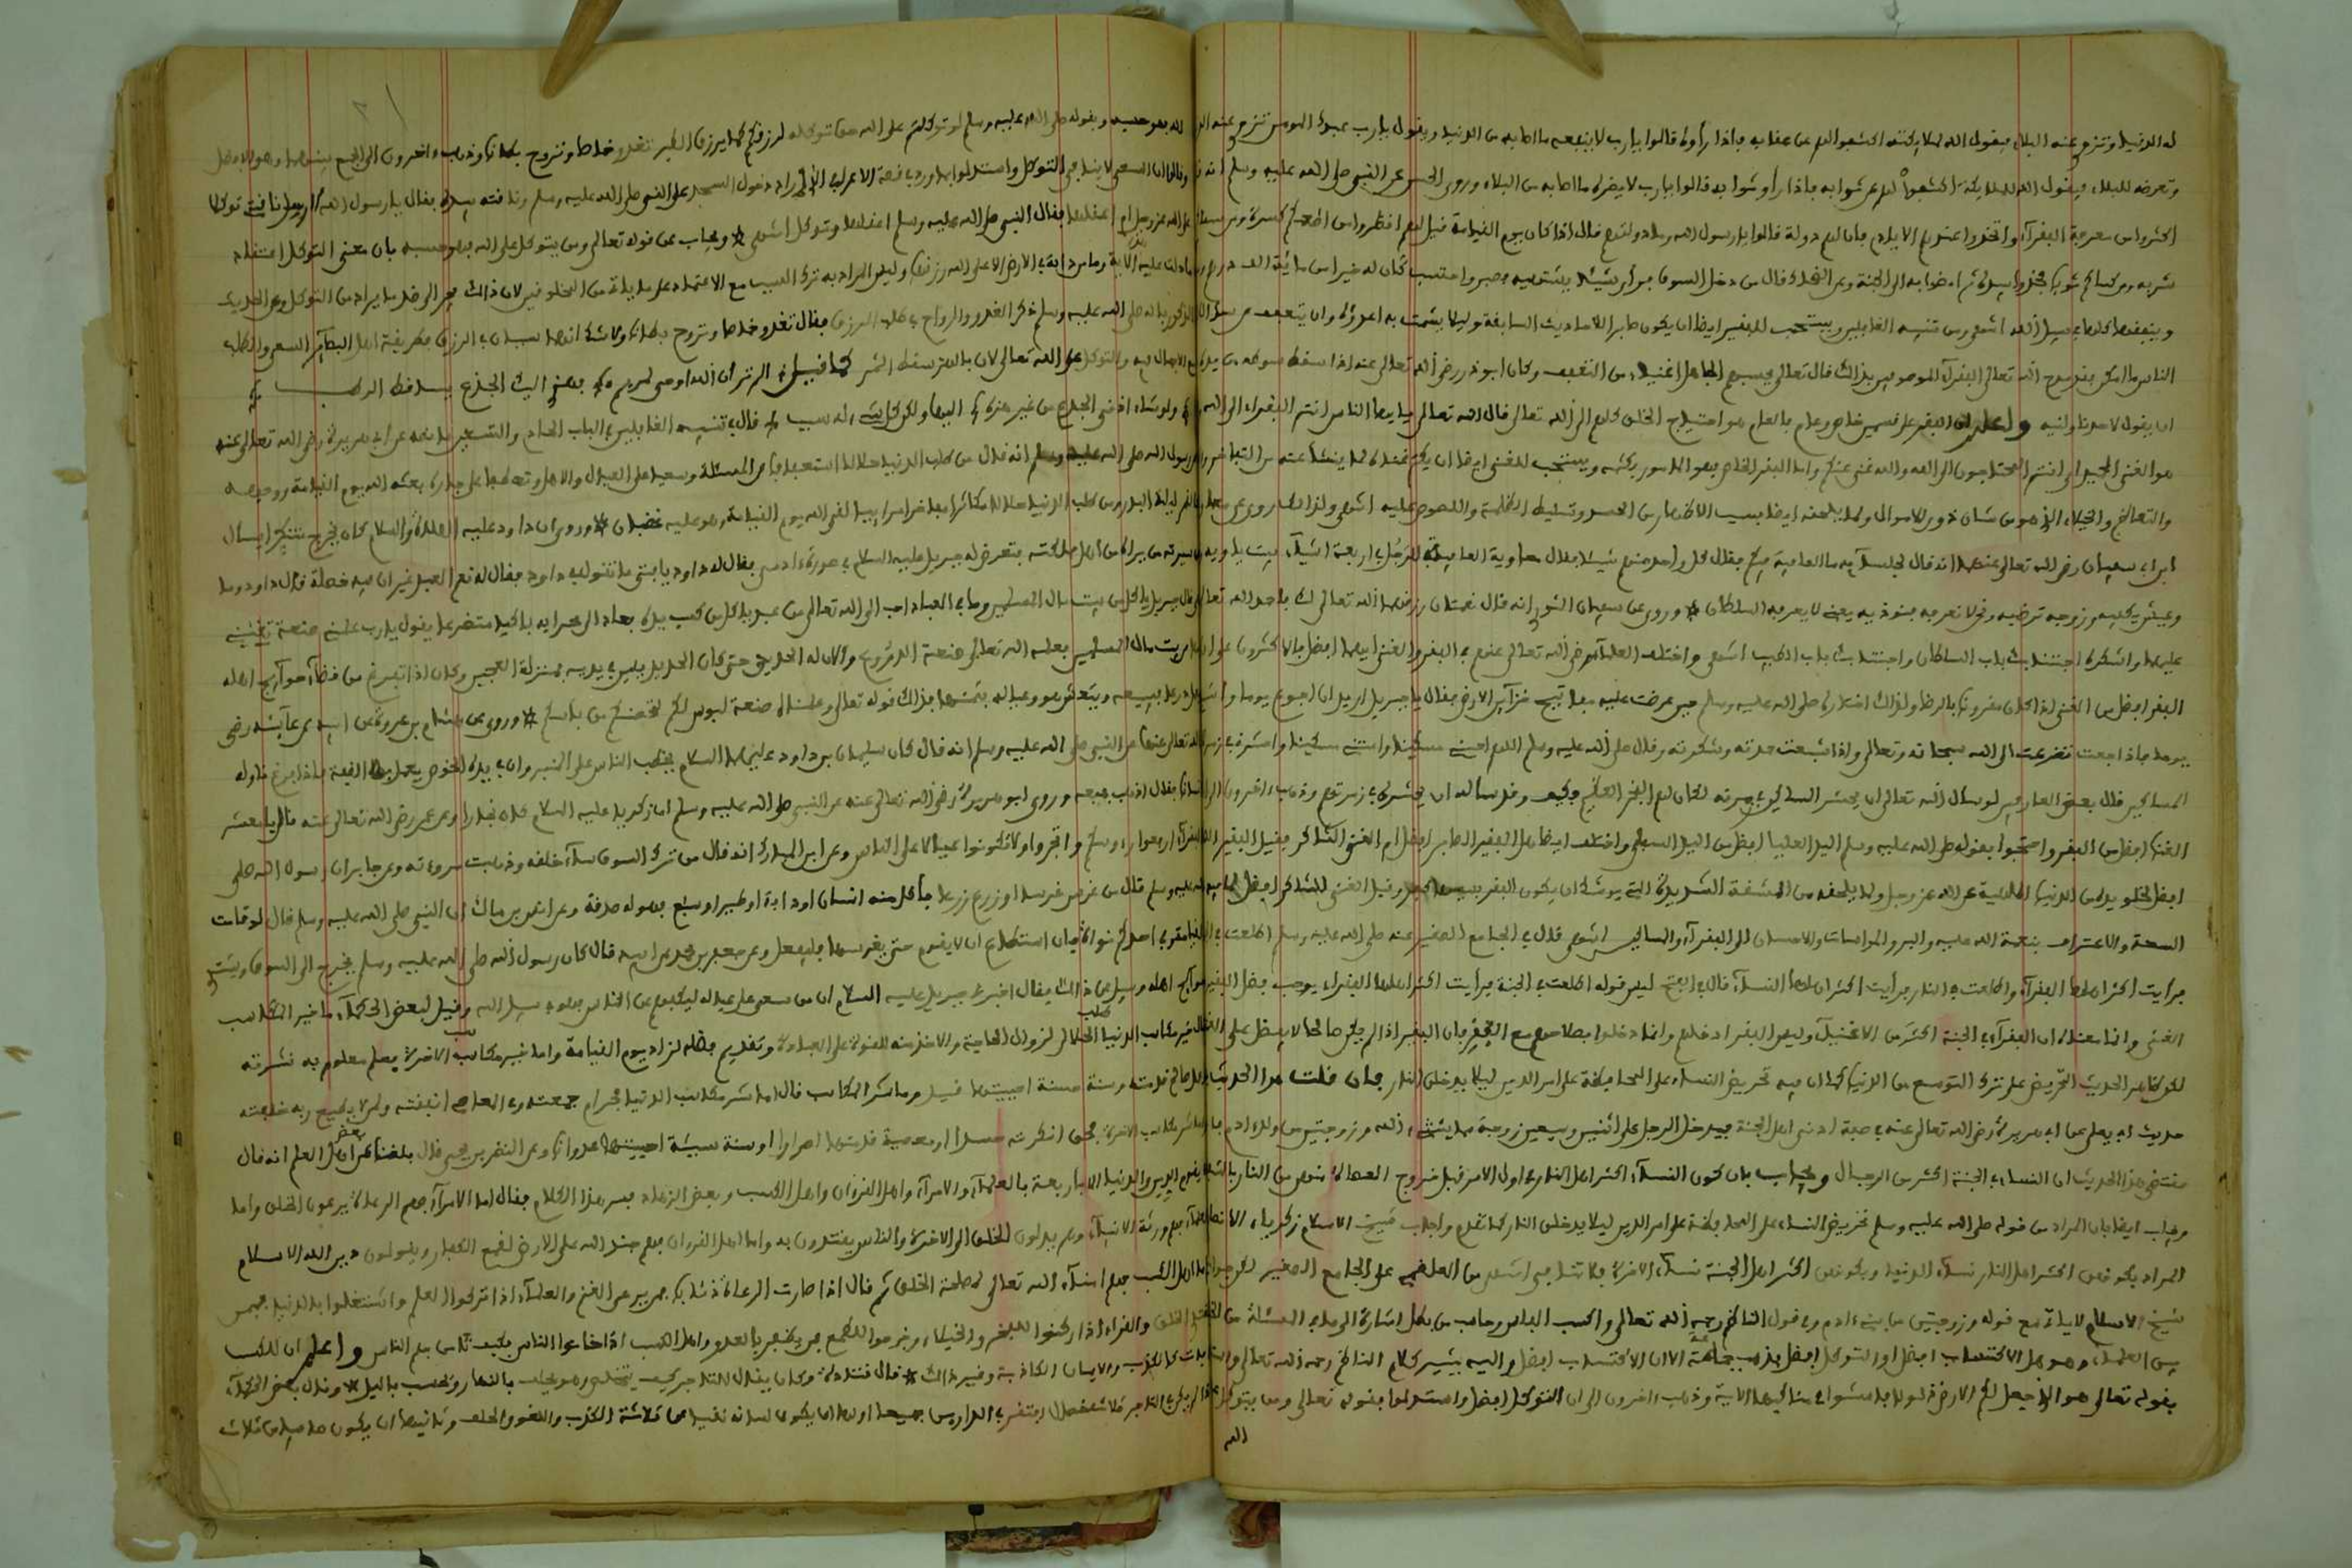 له الدنيا وتنزوى عنه البلاء فيقول الله لملائكته اكشفوا لهم عن عقابه فاذا رأوه قالوا يارب لا ينفعه ما اصابه من الدنيا ويقول يارب عبدك المومن تنزوى عنه الد
وتعرضه للبلاء فيقول الله للملائكة اكشفوا لهم عن ثوابه فاذا رأوا ثوابه قالوا يارب لا يضره ما اصابه من البلاء وروى الحسن عن النبي صلى الله عليه وسلم انه
اكثروا من معرفة الفقرآء واتخذوا عندهم الايادي فان لهم دولة قالوا يا رسول الله وما دولتهم قال اذا كان يوم القيامة قيل لهم انظروا من اطعمكم كسرة ومن سقاكم
شربة ومن كساكم ثوبا فخذوا بيده ثم امضوا به الى الجنة وعن الضحاك قال من دخل السوق فرأى شيئا يشتهيه فصبر واحتسب كان له خيرا من مائة الف درهم
وينفقها كلها في سبيل الله انتهى من تنبيه الغافلين ويستحب للفقير ايضا ان يكون صابرا للاحاديث السابقة وليلا يشمت به اعداؤه وان يتعفف عن سؤال
الناس ما امكن فقد مدح الله تعالى الفقرآء الموصوفين بذالك قال تعالى يحسبهم الجاهل اغنياء من التعفف وكان ابو ذر رضي الله تعالى عنه اذا سقط سوطه من يده
ان يقول لاحد ناولنيه واعلم ان الفقر على قسمين خاص وعام فالعام هو احتياج الخلق كلهم الى الله تعالى قال الله تعالى يا ايها الناس انتم الفقراء الى الله
هو الغني الحميد اي انتم المحتاجون الى الله والله غني عنكم واما الفقر الخاص فهو المامور بكتمه ويستحب للغني ايضا ان يكتم غناه لما ينشأ عنه من التفاخر
والتعالي والخيلاء الذي هو من شان ذوي الاموال ولما يلحقه ايضا بسبب الاظهار من الحسد وتسليط الظلمة واللصوص عليه انتهى ولذالك روى عن
ابن ابي سفيان رضي الله تعالى عنهما انه قال لجلسآئه ما العافية فيكم فقال كل واحد منهم شيئا فقال معاوية العافية للرجل اربعة اشيآء بيت ياويه
وعيش يكفيه وزوجة ترضيه ونحن لا نعرفه فنوذيه يعني لا يعرفه السلطان * وروى عن سفيان الثوري انه قال نعمتان رزقهما الله تعالى لك فاحمد الله تعالى
عليهما واشكره اجتنابك باب السلطان واجتنابك باب الطبيب انتهى واختلف العلمآء رضي الله تعالى عنهم في الفقر والغنى ايهما افضل فالاكثرون على ان
الفقر افضل من الغنى اذا كان مقرونا بالرضا ولذالك اختاره صلى الله عليه وسلم حين عرضت عليه مفاتيح خزآئن الارض فقال يا جبريل اريد ان اجوع يوما واشبع
يوما فاذا جعت تضرعت الى الله سبحانه وتعالى واذا شبعت حمدته وشكرته وقال صلى الله عليه وسلم اللهم احيني مسكينا وامتني مسكينا واحشرني في زمرة
المساكين قال بعض العارفين لو سأل الله تعالى ان يحشر المساكين في زمرته لكان لهم الفخر العظيم فكيف وقد سأله ان يحشره في زمرتهم وذهب اخرون الى ان
الغنى افضل من الفقر واحتجوا بقوله صلى الله عليه وسلم اليد العليا افضل من اليد السفلى واختلف ايضا هل الفقير الصابر افضل ام الغني الشاكر فقيل الفقير
افضل لخلو يده من الدنيا الملهية عن الله عز وجل ولما يلحقه من المشقة الشديدة التي يوشك ان يكون الفقر بسببها كفرا وقيل الغني الشاكر افضل لما فيه
السعة والاعتراف بنعمة الله عليه والبر والمواسات والاحسان الى الفقرآء والمساكين انتهى قال في الجامع الصغير عنه صلى الله عليه وسلم اطلعت في الجنة
فرأيت اكثر اهلها الفقرآء واطلعت في النار فرأيت اكثر اهلها النسآء قال في الفتح ليس قوله اطلعت في الجنة فرأيت اكثر اهلها الفقراء يوجب فضل الفقير
الغني وانما معناه ان الفقرآء في الجنة اكثر من الاغنيآء وليس الفقر ادخلهم وانما دخلوا بصلاحهم مع الفقر فان الفقير اذا لم يكن صالحا لا يفضل على
لكن ظاهر الحديث التحريض على ترك التوسع من الدنيا كما ان فيه تحريض النساء على المحافظة على امر الدين ليلا يدخلن النار فان قلت هذا الحديث
حديث ابي يعلى عن ابي هريرة رضي الله تعالى عنه في صفة ادنى اهل الجنة فيدخل الرجل على اثنين وسبعين زوجة مما ينشئ الله وزوجتين من ولد ادم
مقتضى هذا الحديث ان النساء في الجنة اكثر من الرجال ويجاب بان كون النسآء اكثر اهل النار في اول الامر قبل خروج العصاة منهن من النار بالشفاعة
ويجاب ايضا بان المراد من قوله صلى الله عليه وسلم تحريض النساء على المحافظة على امر الدين ليلا يدخلن النار كما تقدم واجاب شيخ الاسلام زكرياء الانصاري
المراد بكونهن اكثر اهل النار نسآء الدنيا وبكونهن اكثر اهل الجنة نسآء الاخرة فلا تنافي انتهى من العلقمي على الجامع الصغير
شيخ الاسلام لا يلائم مع قوله وزوجتين من بني ادم وفي قول الناظم رحمه الله تعالى واكسب البلاس وحاسب من بطل اشارة الى ما في المسئلة من
بين العلمآء وهو هل الاكتساب افضل او التوكل افضل فذهب جماعة الى ان الاكتساب افضل واليه يشير كلام الناظم رحمه الله تعالى واستدلوا
بقوله تعالى هو الذي جعل لكم الارض ذلولا فامشوا في مناكبها الاية وذهب اخرون الى ان التوكل افضل واستدلوا بقوله تعالى ومن يتوكل
الله
الله فهو حسبه وبقوله صلى الله عليه وسلم لو توكلتم على الله حق توكله لرزقكم كما يرزق الطير تغدو خماصا وتروح بطانا وذهب اخرون الى الجمع بينهما وهو الافضل
وقالوا ان السعي لا ينافي التوكل واستدلوا بما ورد في قصة الاعرابي الذي اراد دخول المسجد على النبي صلى الله عليه وسلم وناقته بيده فقال يا رسول الله أارسل ناقتي توكلا
على الله عز وجل ام اعقلها فقال النبي صلى الله عليه وسلم اعقلها وتوكل انتهى * ويجاب عن قوله تعالى ومن يتوكل على الله فهو حسبه بان معنى التوكل اعتقاد
ما دلت عليه الاية وما من دابة في الارض الا على الله رزقها وليس المراد به ترك السبب مع الاعتماد على ما ياتي من المخلوقين لان ذالك يجر الى ضد ما يراد من التوكل وعن الحديث
المذكور بانه صلى الله عليه وسلم ذكر الغدو والرواح في طلب الرزق فقال تغدو خماصا وتروح بطانا ولا شك انهما سببان في الرزق فطريقة اهل البصآئر السعي والطلب
مع الاجمال فيه والتوكل على الله تعالى لان بالهز سقط الثمر كما قيل * الم تر ان الله اوحى لمريم * فهزي اليك الجذع يساقط الرطب *
* ولو شاء ادنى الجذع من غير هزة * اليها ولكن كل شيء له سبب * قال في تنبيه الغافلين في الباب الحادي والتسعين ما نصه عن ابي هريرة رضي الله تعالى عنه
عن رسول الله صلى الله عليه وسلم انه قال من طلب الدنيا حلالا استعفافا عن المسئلة وسعيا على العيال والاهل وتعطفا على جاره بعثه الله يوم القيامة ووجهه
كالقمر ليلة البدر ومن طلب الدنيا حلالا مكاثرا مفاخرا مرآئيا لقي الله يوم القيامة وهو عليه غضبان * وروى ان داود عليه الصلاة والسلام كان يخرج متنكرا يسأل
عن سيرته من يراه من اهل مملكته فتعرض له جبريل عليه السلام في صورة ادمي فقال له داود يا فتى ما تقول في داود فقال له نعم العبد غير ان فيه خصلة قال داود وما
هي قال جبريل ياكل من بيت مال المسلمين وما في العباد احب الى الله تعالى من عبد ياكل من كسب يده فعاد الى محرابه باكيا متضرعا يقول يارب علمني صنعة تغنيني
بها عن بيت مال المسلمين فعلمه الله تعالى صنعة الدروع وألان له الحديد حتى كان الحديد في يديه بمنزلة العجين وكان اذا تفرغ من قضآء حوآئج اهله
عمل درعا فيبيعه ويتعيش هو وعياله بثمنها فذالك قوله تعالى وعلمناه صنعة لبوس لكم لتحصنكم من بأسكم * وروى عن هشام بن عروة عن ابيه عن عآئشة رضي
الله تعالى عنها عن النبي صلى الله عليه وسلم انه قال كان سليمان بن داود عليهما السلام يخطب الناس على المنبر وان في يده الخوص يعمل بها القفة فاذا فرغ ناوله
انسانا فقال اذهب فبعه وروى ابو هريرة رضي الله تعالى عنه عن النبي صلى الله عليه وسلم ان زكريا عليه السلام كان نجارا وعن عمر رضي الله تعالى عنه قال يا معشر
الفقرآء ارفعوا رءوسكم واتجروا ولا تكونوا عيالا على الناس وعن ابن المبارك انه قال من ترك السوق سآء خلقه وذهبت مروءته وعن جابر ان رسول الله صلى
الله عليه وسلم قال من غرس غرسا او زرع زرعا فأكل منه انسان او دابة او طير او سبع فهو له صدقة وعن انس بن مالك ان النبي صلى الله عليه وسلم قال لو قامت
القيامة وفي يد احدكم نواة فان استطاع ان لا يقوم حتى يغرسها فليفعل وعن جعفر بن محمد عن ابيه قال كان رسول الله صلى الله عليه وسلم يخرج الى السوق ويشتري
حوآئج اهله وسئل عن ذالك فقال اخبرني جبريل عليه السلام ان من سعى على عياله ليكفهم عن الناس فهو في سبيل الله وقيل لبعض الحكمآء ما خير المكاسب
قال خير مكاسب الدنيا طلب الحلال لزوال الحاجة والاخذ منه للقوة على العبادة وتقديم فضله لزاد يوم القيامة واما خير مكاسب الاخرة فعلم معلوم به نشرته
وعمل صالح قدمته وسنة حسنة احييتها قيل وما شر المكاسب قال اما شر مكاسب الدنيا فحرام جمعته وفي المعاصي انفقته ولمن لا يطيع ربه خلفته
واما شر مكاسب الاخرة فحق انكرته حسدا ومعصية قدمتها اصرارا وسنة سيئة احييتها عدوانا وعن النضر بن يحيى قال بلغنا عن بعض اهل العلم انه قال
يقوم الدين والدنيا الا باربعة بالعلمآء والامرآء واهل الغزوان واهل الكسب وبعض الزهاد يسر هذا الكلام فقال اما الامرآء فهم الرعاة يرعون الخلق واما
العلمآء فهم ورثة الانبيآء وهم يدلون الخلق الى الاخرة والناس يقتدون به واما اهل الغزوان فهم جند الله على الارض لقمع الكفار ويقولون دين الله الاسلام
واما اهل الكسب فهم امنآء الله تعالى لمصلحة الخلق ثم قال اذا صارت الرعاة ذئابا فمن يرعى الغنم والعلمآء اذا تركوا العلم واشتغلوا بالدنيا فبمن
يقتدي الخلق والغزاة اذا ركبوا للفخر والخيلاء وخرجوا للطمع فمن يظفر بالعدو واهل الكسب اذا خانوا الناس فكيف يأمن بهم الناس واعلم ان للكسب
آفات كالكذب والايمان الكاذبة وغير ذالك * قال قتادة وكان يقال للتاجر كيف يتخلص وهو يحلف بالنهار ويحسب بالليل * وقال بعض الحكمآء
اذا لم يكن في التاجر ثلاث خصال افتقر في الدارين جميعا اولها ان يكون لسانه نقيا من ثلاثة الكذب واللغو والحلف وثانيها ان يكون صافيا من ثلاث